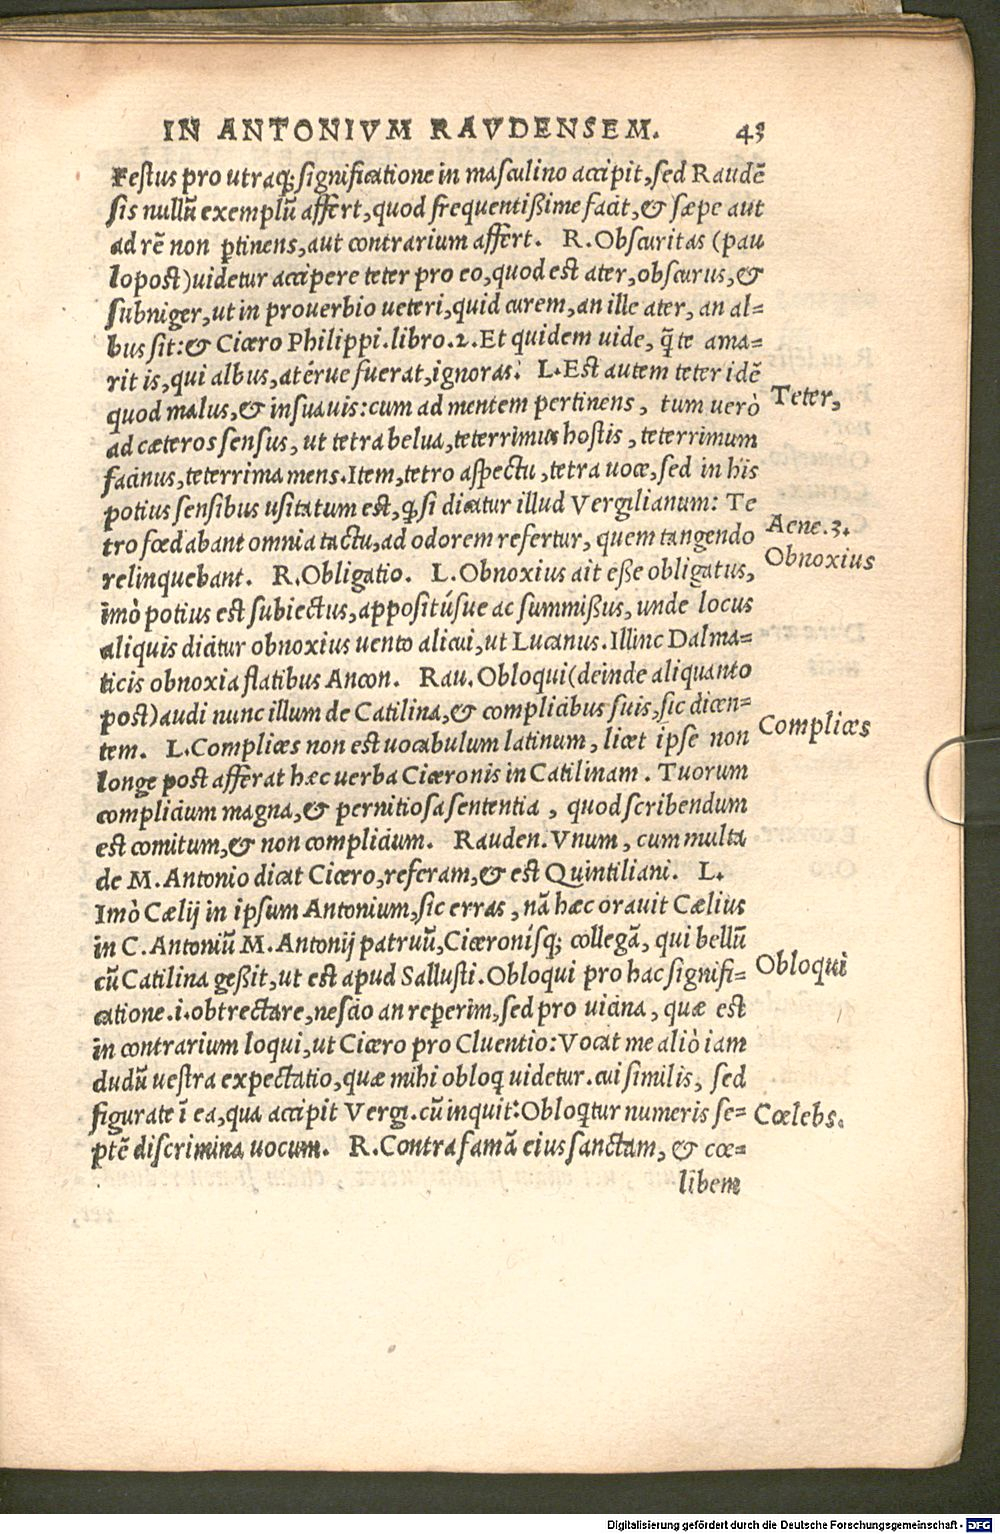 IN ANTONIVM RAVDENSEM. 43
Festus pro utraq; significatione in masculino accipit, sed Raudē
sis nullū exemplū affert, quod frequentißime facit, & sæpe aut
ad rē non ꝑtinens, aut contrarium affert. R. Obscuritas (pau
lopost) uidetur accipere teter pro eo, quod est ater, obscurus, &
subniger, ut in prouerbio ueteri, quid curem, an ille ater, an al=
bus sit: & Cicero Philippi. libro. 2. Et quidem uide, q̄ te ama=
rit is, qui albus, atérue fuerat, ignoras? L. Est autem teter idē
quod malus, & insuauis: cum ad mentem pertinens, tum uerò
Teter,
ad cæteros sensus, ut tetra belua, teterrimus hostis, teterrimum
facinus, teterrima mens. Item, tetro aspectu, tetra uoce, sed in hijs
potius sensibus usitatum est, q̄ si dicatur illud Vergilianum: Te
tro fœdabant omnia tactu, ad odorem refertur, quem tangendo
Aene. 3.
relinquebant. R. Obligatio. L. Obnoxius ait eße obligatus,
Obnoxius
imò potius est subiectus, appositúsue ac summißus, unde locus
aliquis dicitur obnoxius uento alicui, ut Lucanus. Illinc Dalma=
ticis obnoxia flatibus Ancon. Rau. Obloqui (deinde aliquanto
post) audi nunc illum de Catilina, & complicibus suis, sic dicen=
tem. L. Complices non est uocabulum latinum, licet ipse non
Complices
longe post afferat hæc uerba Ciceronis in Catilinam. Tuorum
complicium magna, & pernitiosa sententia, quod scribendum
est comitum, & non complicium. Rauden. Vnum, cum multa
de M. Antonio dicat Cicero, referam, & est Quintiliani. L.
Imò Cælij in ipsum Antonium, sic erras, nā hæc orauit Cælius
in C. Antoniū M. Antonij patruū, Ciceronísq; collegā, qui bellū
cū Catilina geßit, ut est apud Sallusti. Obloqui pro hac signifi=
Obloqui
catione .i. obtrectare, nescio an reperim, sed pro uicina, quæ est
in contrarium loqui, ut Cicero pro Cluentio: Vocat me aliò iam
dudū uestra expectatio, quæ mihi obloq uidetur. cui similis, sed
figurate ī ea, qua accipit Vergi. cū inquit: Obloqtur numeris se=
Cœlebs.
ptē discrimina uocum. R. Contra famā eius sanctam, & cœ=
libem
Digitalisierung gefördert durch die Deutsche Forschungsgemeinschaft - DFG